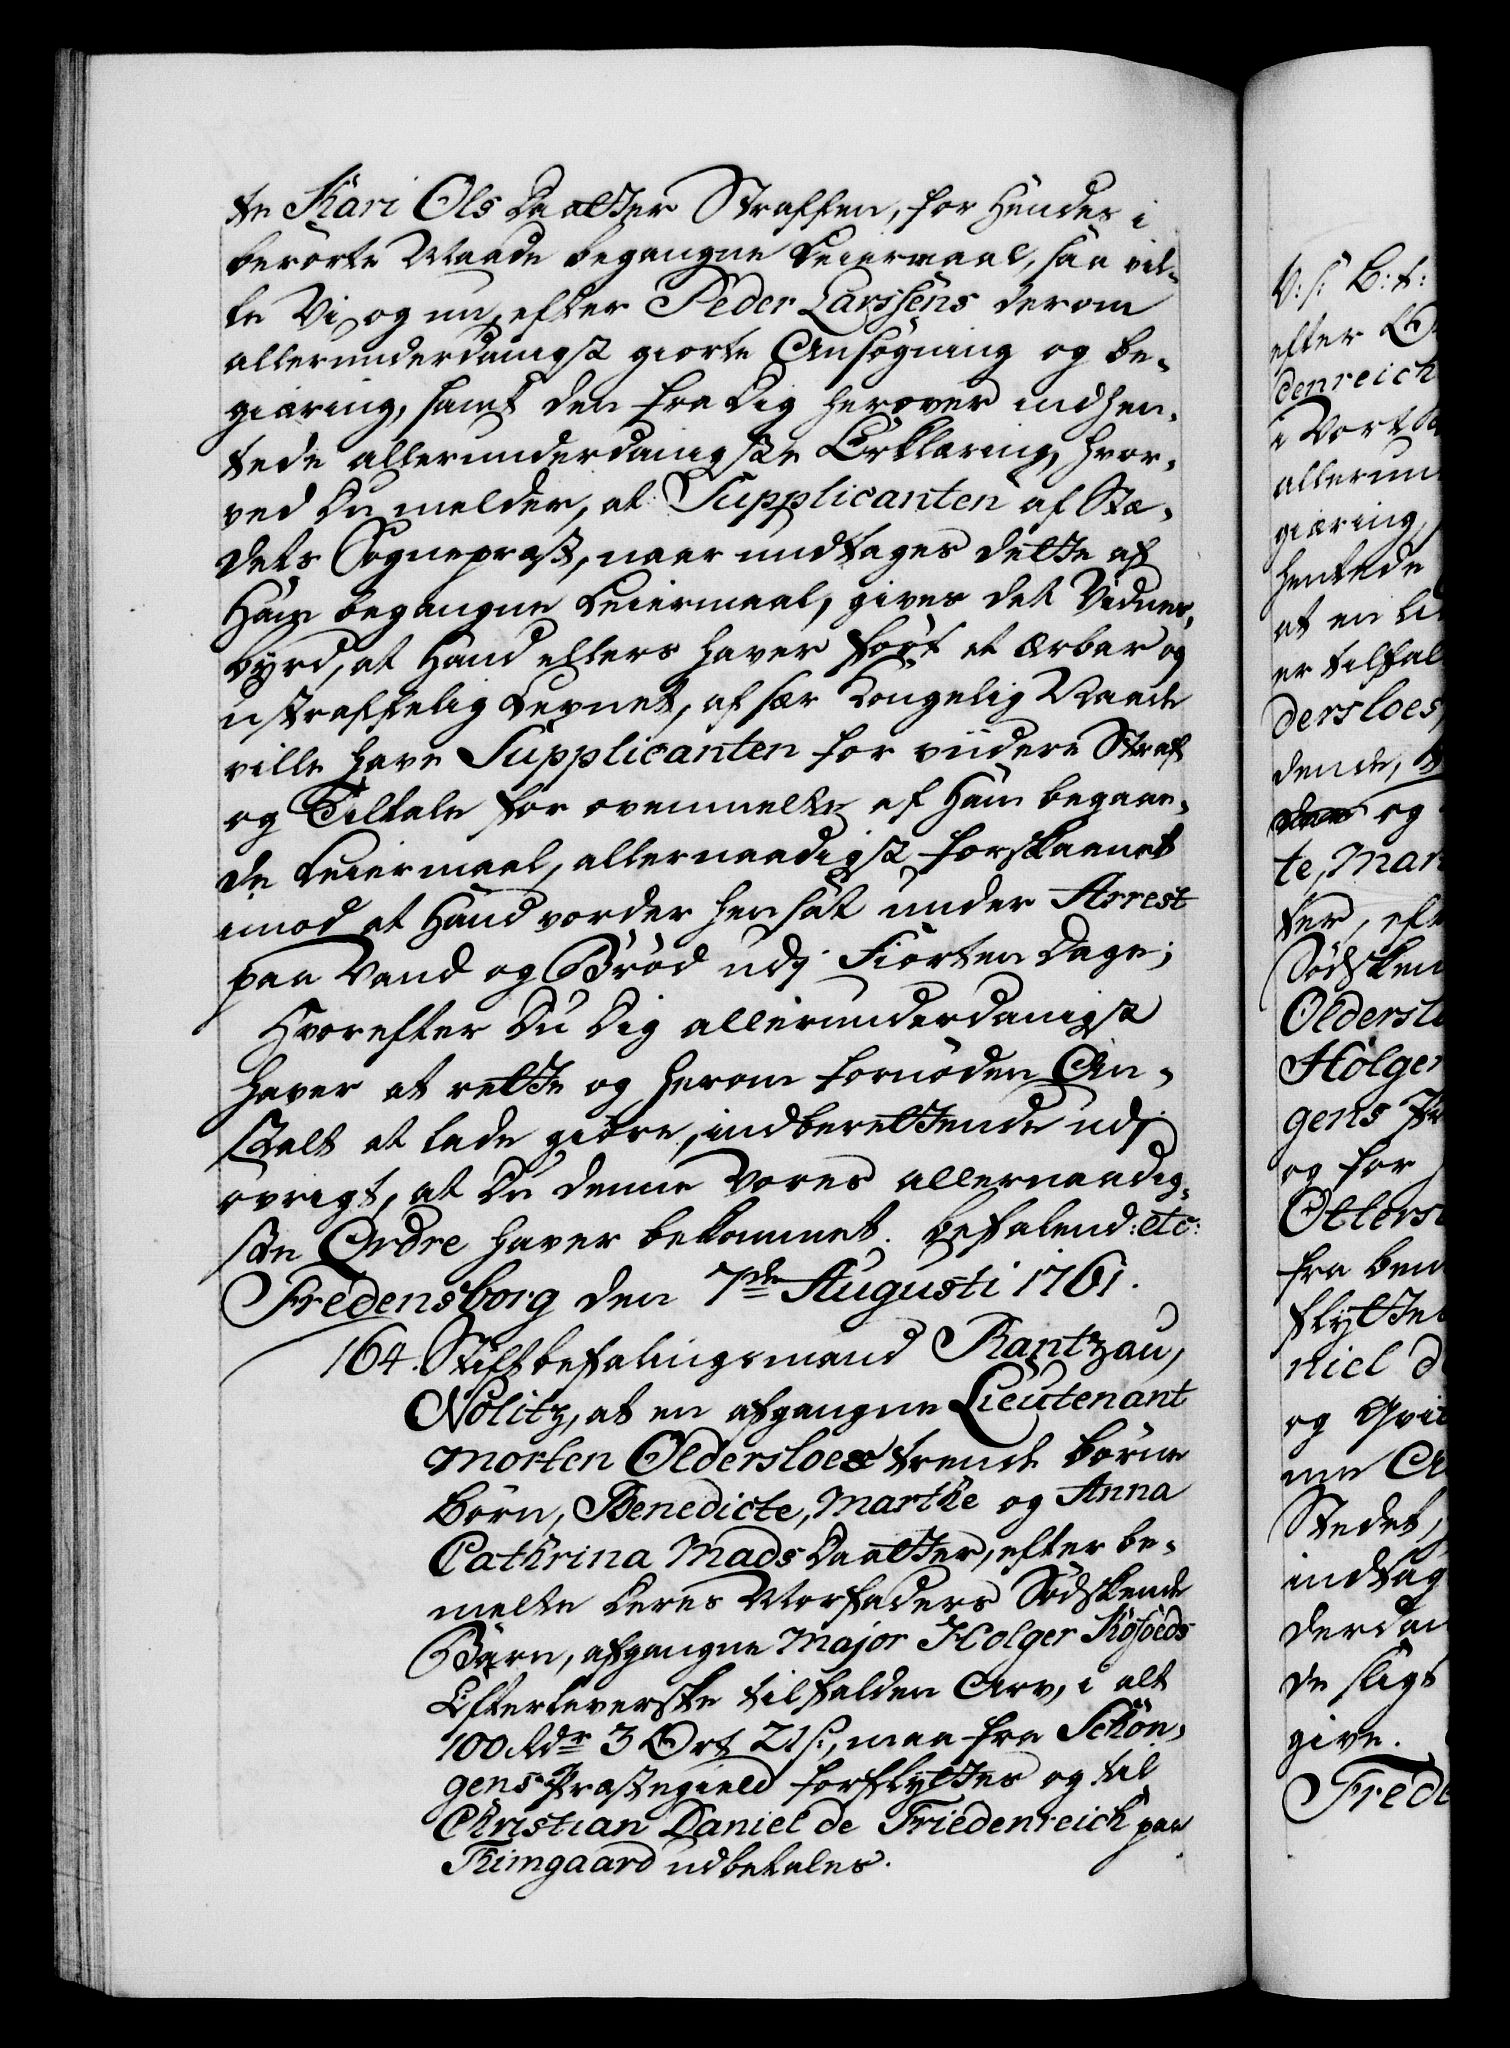 te Kari Ols Daatter Straffen, for Hendes i
berørte Maade begangne Leiermaal, saa vil-
le Vi og nu, efter Peder Larssøns derom
allerunderdanigst giorte Ansøgning og be-
giæring, samt den fra Dig herover indhen-
tede allerunderdanigste Erklæring, hvor-
ved Du melder, at Supplicanten af Stæ-
dets Sognepræst, naar undtages dette af
Ham begangne Leiermaal, gives det Vidnes-
byrd, at Hand ellers haver ført et ærbar og
ustraffelig Levnet, af sær Kongelig Naade
ville have Supplicanten for viidere Straf
og Tiltale for ovenmelte af Ham begaae-
de Leiermaal, allernaadigst forskaanet
imod at Hand vorder hensat under Arrest
paa Vand og Brød udj Fiorten Dage;
Hvorefter Du Dig allerunderdanigst
haver at rette og herom fornøden An-
stalt at lade giøre, indberettende udj
øvrigt, at Du denne Vores allernaadig-
ste Ordre haver bekommet. Befalend: etc:
Fredensborg den 7de Augusti 1761.
164. Stiftbefalingsmand Rantzau,
Nolitz, at en afgangne Lieutenant
Morten Oldersloes trende Børne
Børn, Benedicte, Marthe og Anna
Cathrina Mads Daatter, efter be-
melte Deres Morfaders Sødskende
Barn, afgangne Major Holger Kofoeds
Efterleverske tilfalden Arv, i alt
100 Rdr 3 Ort 21 s:, maa fra Schon-
gens Præstegield forflyttes og til
Christian Daniel de Friedenreich paa
Kimgaard udbetales.
V: s: B: t:
efter
denreich
i Vort
allerun
giæring
hentede
at en
er tilfal
dersloes
dende,
og
te, Mar
ter, eft
Sødsken
Oldersl
Holger
gens
og for
Otters
fra ben
flytte
niel d
og Qvi
nu
Stedet,
indtag
derdan
de sligt
give.
Frede